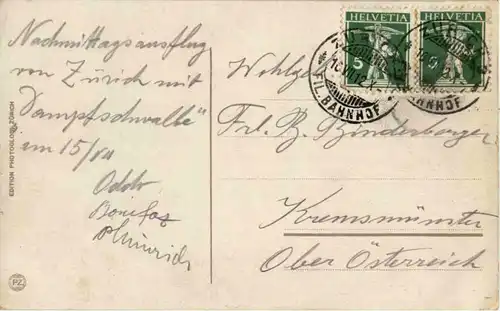 Nachmittagsausflug
von Zürich mit
Dampfschwalbe
am 15/VII
Bonifaz
Hinrich
EDITION PHOTOGLOB ZÜRICH
PZ
HELVETIA HELVETIA
5
FIL. BAHNHOF
FIL. BAHNHOF
Wohlgeb.
Frl. B. Binderberger
Kremsmünster
Ober Österreich